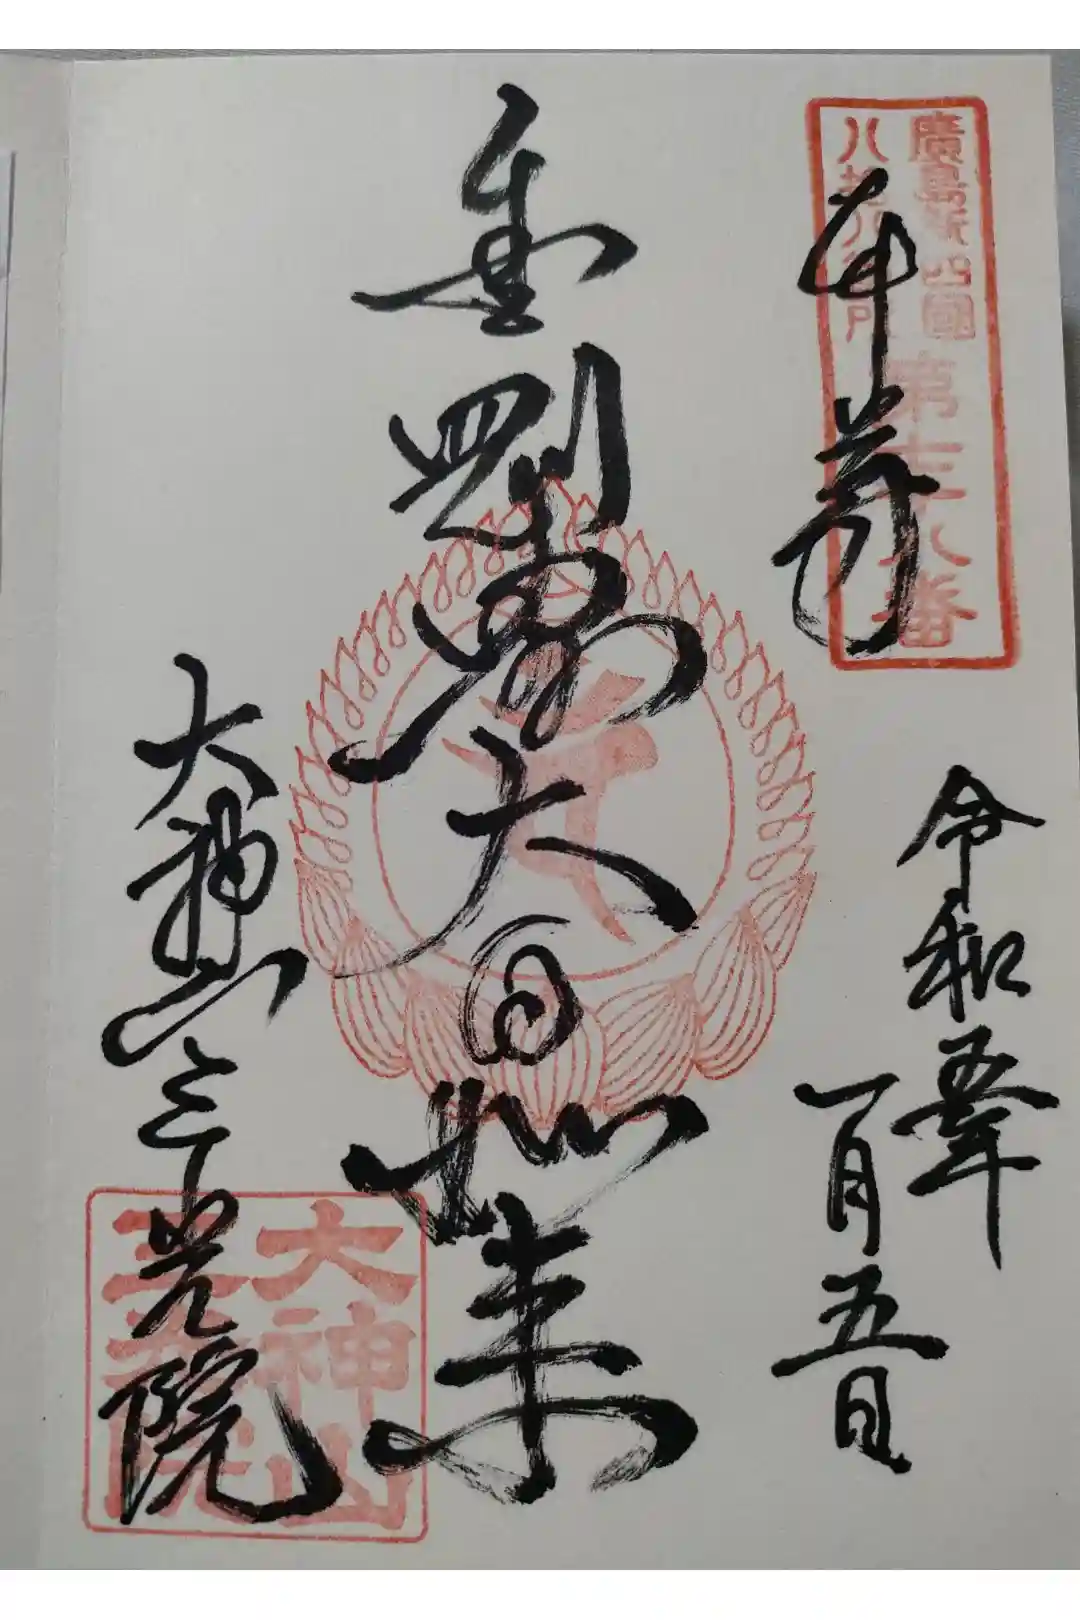 廣島新四國
八拾八ヶ所
奉拝
令和五年
一月五日
金剛界大日如来
大神山三光院
大神山
三光院